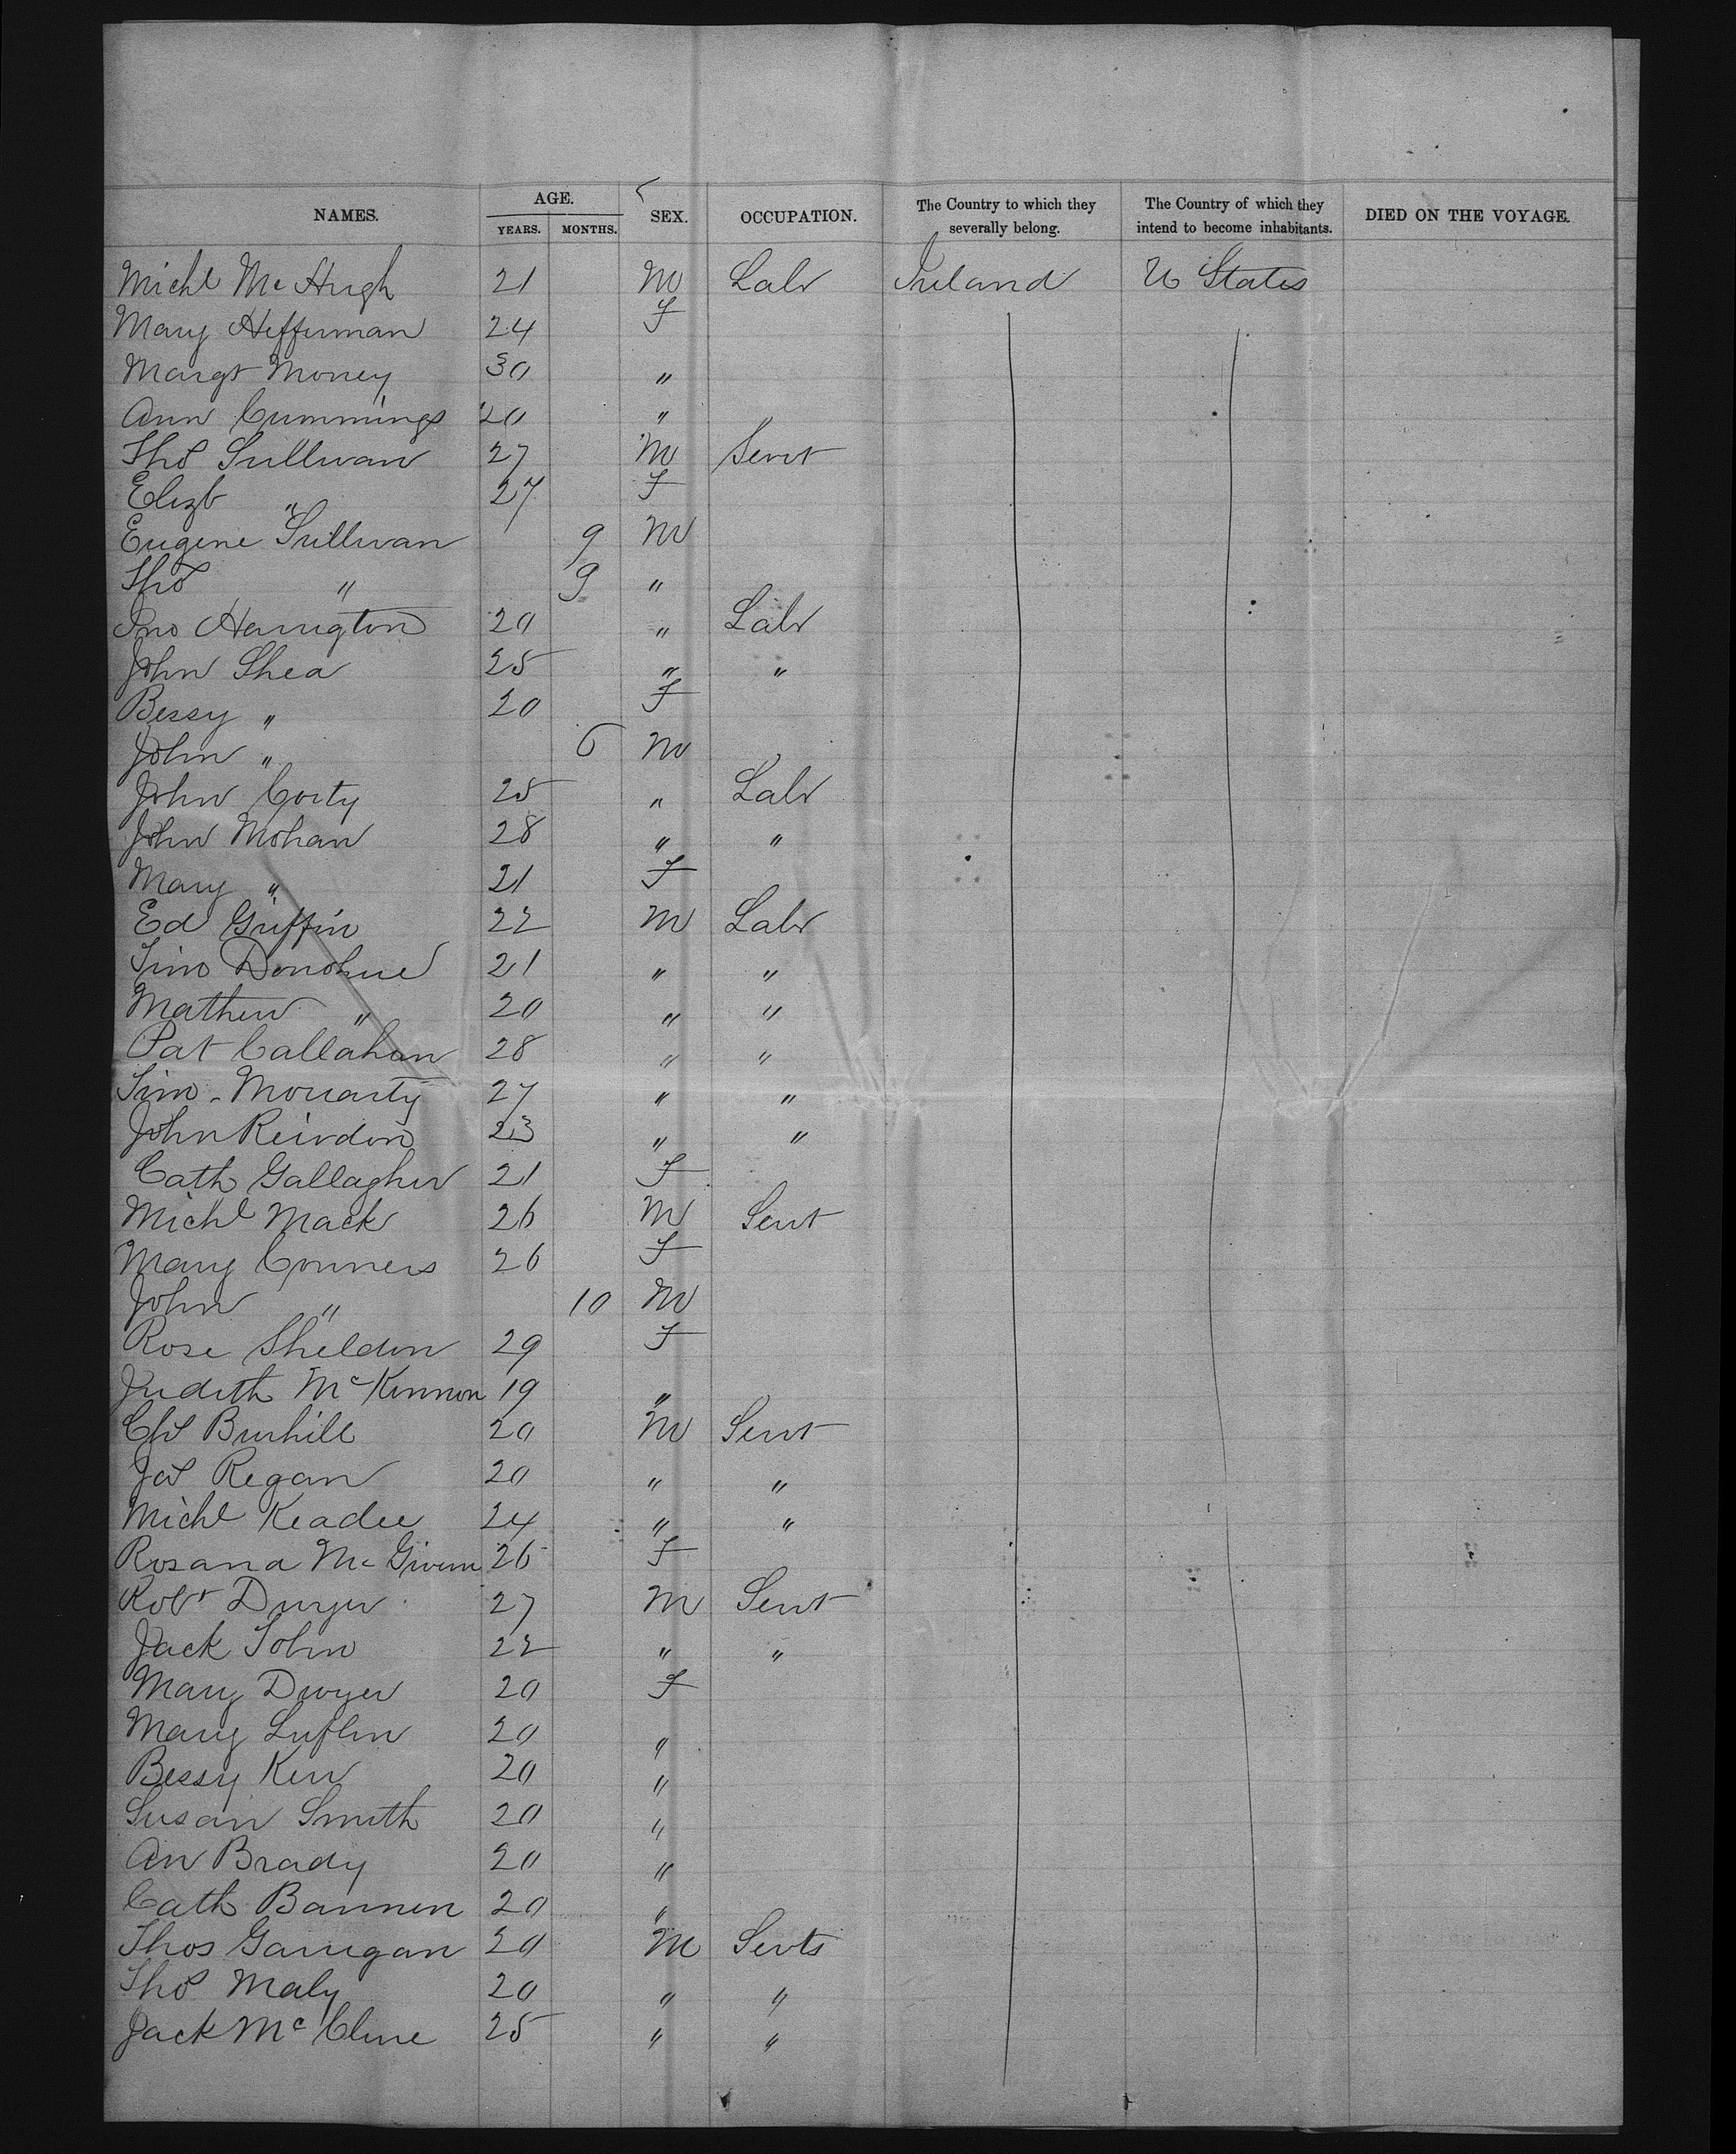 NAMES. AGE. YEARS. MONTHS. SEX. OCCUPATION. The Country to which they severally belong. The Country of which they intend to become inhabitants. DIED ON THE VOYAGE.
Michl McHugh 21 M Labr Ireland U States
Mary Heffernan 24 F
Margt Money 30 "
Ann Cummings 20 "
Thos Sullivan 27 M Servt
Elizb " 27 F
Eugene Sullivan 9 M
Thos " 9 "
Jno Harrington 20 " Labr
John Shea 25 " "
Bessy " 20 F
John " 6 M
John Corty 25 " Labr
John Mohan 28 " "
Mary " 21 F
Ed Griffin 22 M Labr
Tim Donohue 21 " "
Mathew " 20 " "
Pat Callahan 28 " "
Tim Moriarty 27 " "
John Reirdon 23 " "
Cath Gallagher 21 F
Michl Mack 26 M Servt
Mary Conners 26 F
John " 10 M
Rose Sheldon 29 F
Judith McKinnon 19 "
Chs Burhill 20 M Servt
Jas Regan 20 " "
Michl Keadee 24 " "
Rosana McGivern 26 F
Robt Dwyer 27 M Servt
Jack Tobin 22 " "
Mary Dwyer 20 F
Mary 20 "
Bessy Kerr 20 "
Susan Smith 20 "
An Brady 20 "
Cath Bannen 20 "
Thos Garrigan 20 M Servts
Thos Maly 20 " "
Jack McClune 25 " "